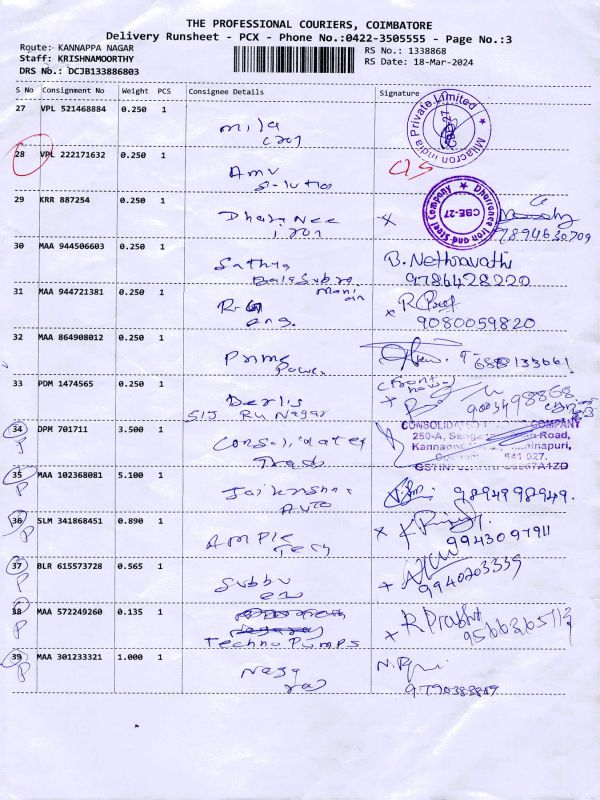 THE PROFESSIONAL COURIERS, COIMBATORE
Delivery Runsheet - PCX - Phone No.:0422-3505555 - Page No.:3
Route:- KANNAPPA NAGAR
RS No.: 1338868
Staff: KRISHNAMOORTHY
RS Date: 18-Mar-2024
DRS No.: DCJB133886803
S No Consignment No Weight PCS Consignee Details Signature
27 VPL 521468884 0.250 1 Mila
Milacron India Private Limited
CBE-27
28 VPL 222171632 0.250 1 AMV
29 KRR 887254 0.250 1
Dharanee Iron and Steel Company
CBE-27
7894630709
30 MAA 944506603 0.250 1 Sathya B. Nethravathi
9786428220
31 MAA 944721381 0.250 1 R-G
eng. 9080059820
32 MAA 864908012 0.250 1 Prime
Power
33 PDM 1474565 0.250 1 Berlis
SIJ Ru Nagar 9003498868
34 DPM 701711 3.500 1 Consolidated
P
CONSOLIDATED COMPANY
250-A, Road,
35 MAA 102368081 5.100 1 Jaikrishna
P Auto 9894998949.
36 SLM 341868451 0.890 1 AMPLE
P Tech 9943097911
37 BLR 615573728 0.565 1 Subbu
P 9940203339
38 MAA 572249260 0.135 1 R Prabhu
P Techno Pumps
39 MAA 301233321 1.000 1 Naga
P raj